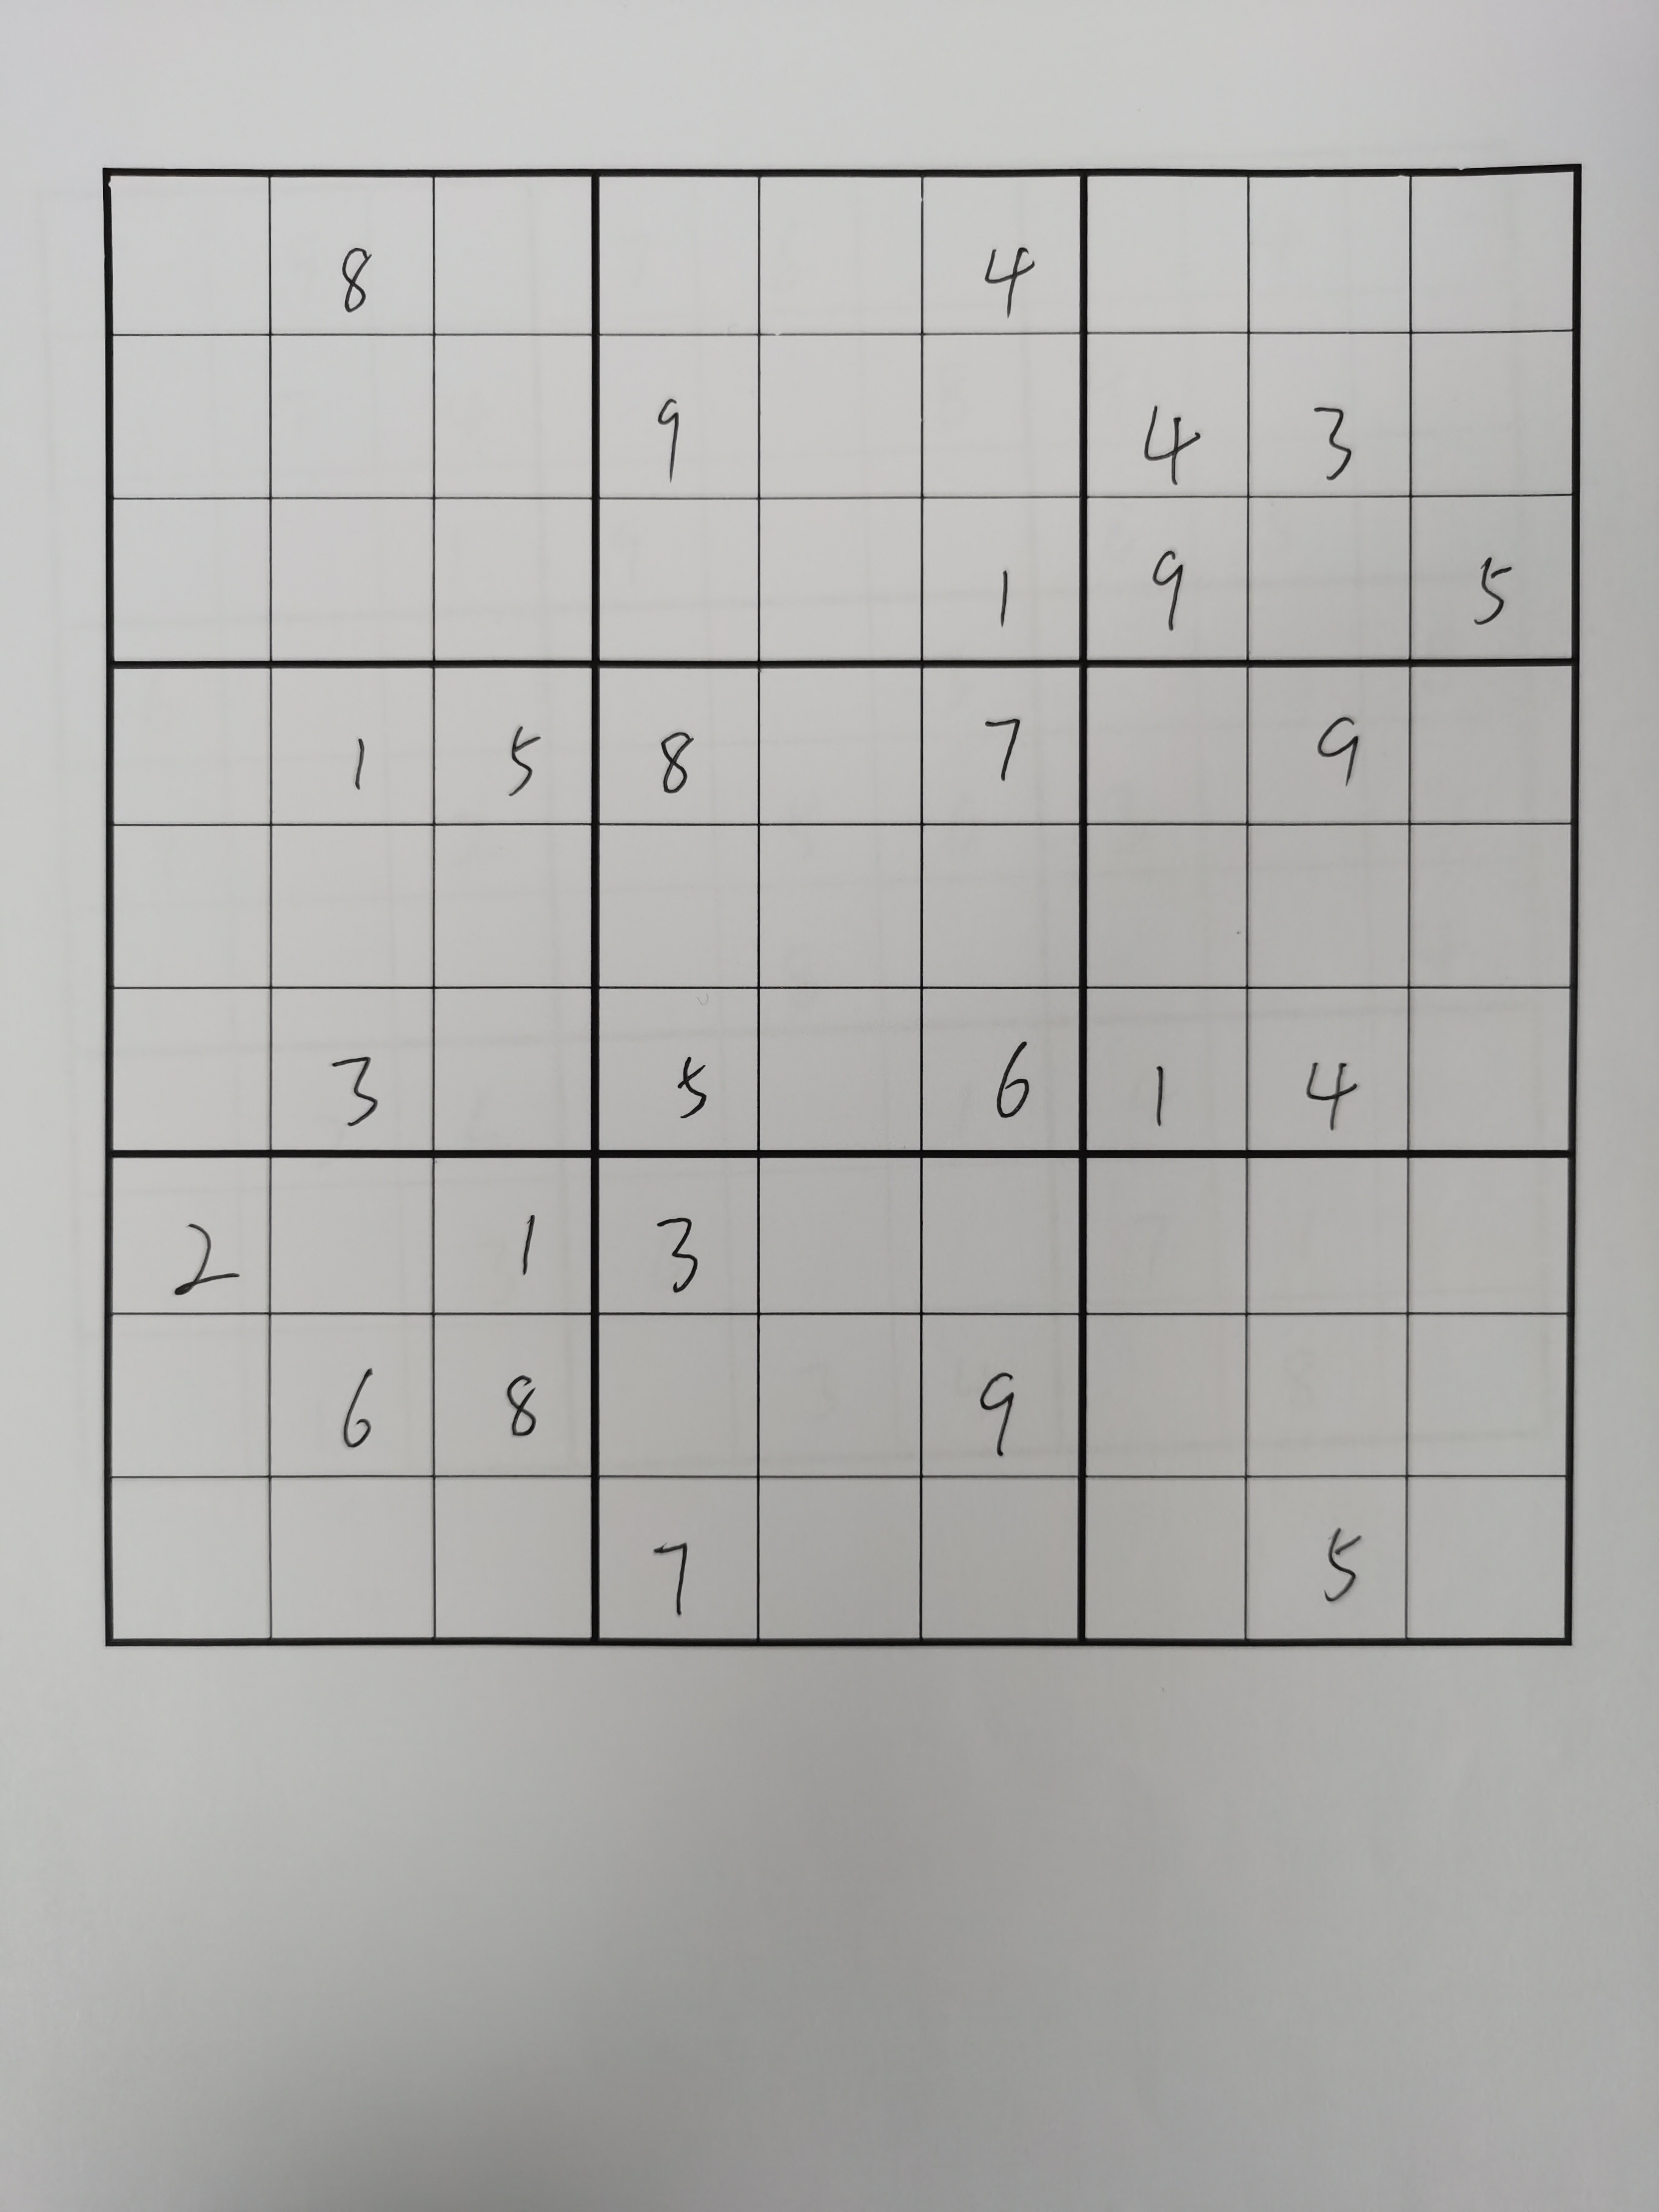 8 4
9 4 3
1 9 5
1 5 8 7 9
3 5 6 1 4
2 1 3
6 8 9
7 5